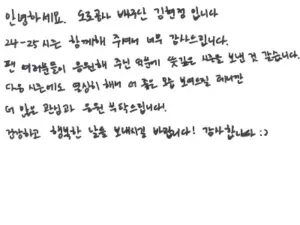 안녕하세요. 도로공사 배구단 김현정입니다
24-25시즌 함께해 주셔서 너무 감사드립니다.
팬 여러분들이 응원해 주신 덕분에 뜻깊은 시즌을 보낸 것 같습니다.
다음 시즌에도 열심히 해서 더 좋은 모습 보여드릴 테니까
더 많은 관심과 응원 부탁드립니다!
건강하고 행복한 날들 보내시길 바랍니다! 감사합니다 :)